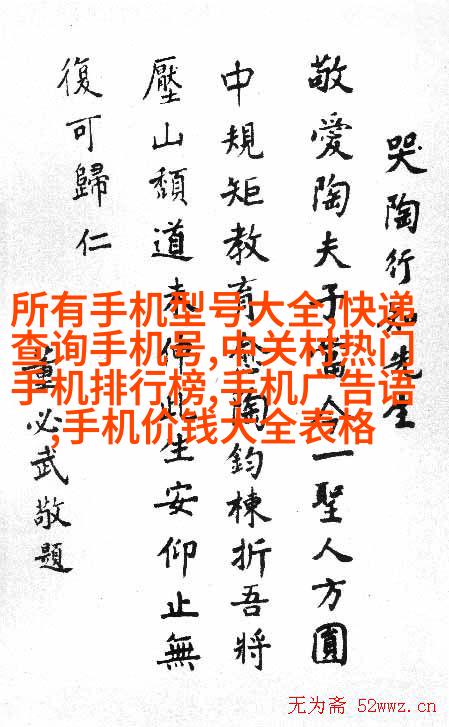 哭陶行知先生
敬愛陶夫子當今一聖人方圓
中規矩教育愈陶鈞棟折吾將
壓山頹道未伸此生安仰止無
復可歸仁
董必武敬題
所有手机型号大全,快递
查询手机号,中关村热门
手机排行榜,手机广告语
,手机价钱大全表格
无为斋 52wwz.cn